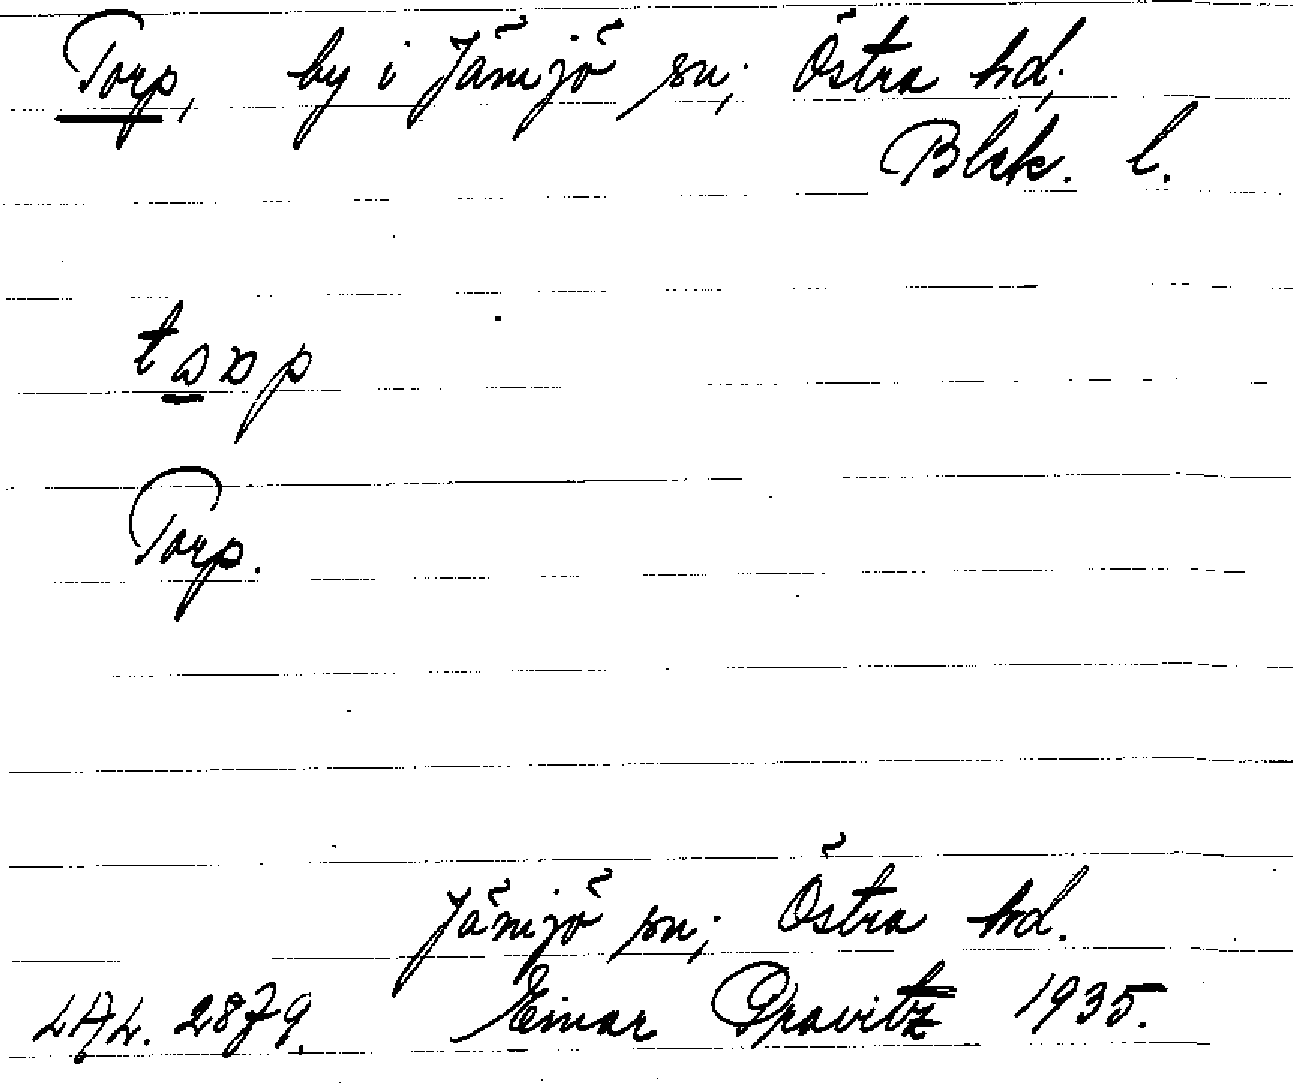 Torp, by i Jämjö sn; Östra hd;
Blek. l.
Torp.
Jämjö sn; Östra hd.
LAL. 2879. Einar Gravitz 1935.